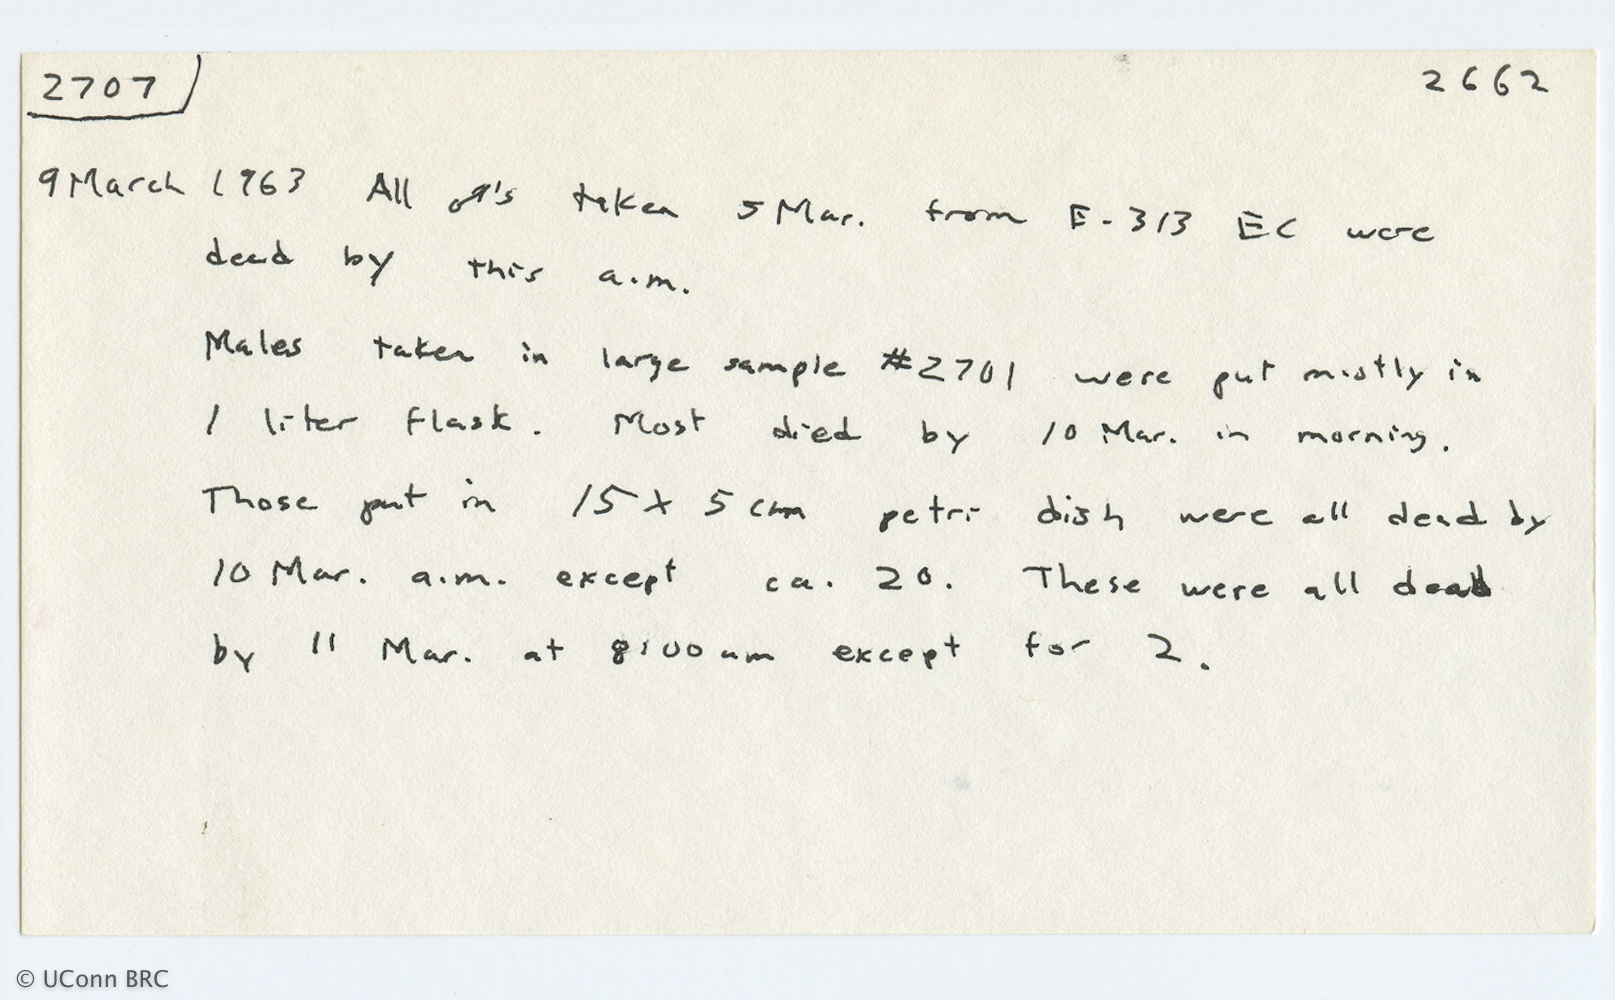 2707 2662
9 March 1963 All ♂'s taken 5 Mar. from E-313 EC were
dead by this a.m.
Males taken in large sample #2701 were put mostly in
1 liter flask. Most died by 10 Mar. in morning.
Those put in 15 x 5 cm petri dish were all dead by
10 Mar. a.m. except ca. 20. These were all dead
by 11 Mar. at 8:00 am except for 2.
© UConn BRC